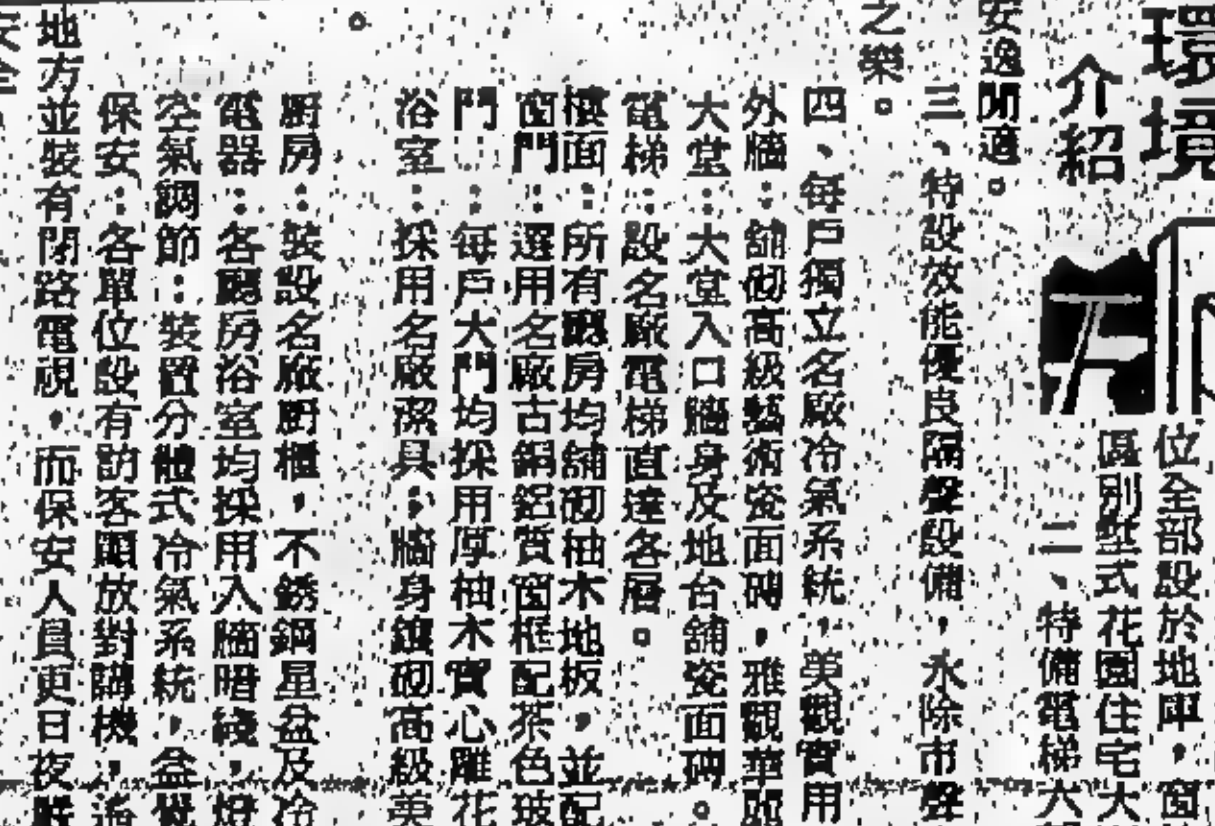 環境
介紹
位全部設於地庫，窗
區別墅式花園住宅大
二、特備電梯六
安逸閒適。
三、特設效能優良隔聲設備，永除市聲
之樂。
四、每戶獨立名廠冷氣系統，美觀實用
外牆：舖砌高級藝術瓷面磚，雅觀華麗
大堂：大堂入口牆身及地台舖瓷面磚。
電梯：設名廠電梯直達各層。
樓面：所有廳房均舖砌柚木地板，並配
窗門：選用名廠古銅鋁質窗框配茶色玻
門：每戶大門均採用厚柚木實心雕花
浴室：採用名廠潔具，牆身鑲砌高級美
廚房：裝設名廠廚櫃，不銹鋼星盆及冷
電器：各廳房浴室均採用入牆暗綫，燈
空氣調節：裝置分體式冷氣系統，益覺
保安：各單位設有訪客顯放對講機，
地方並裝有閉路電視，而保安人員更日夜
安全